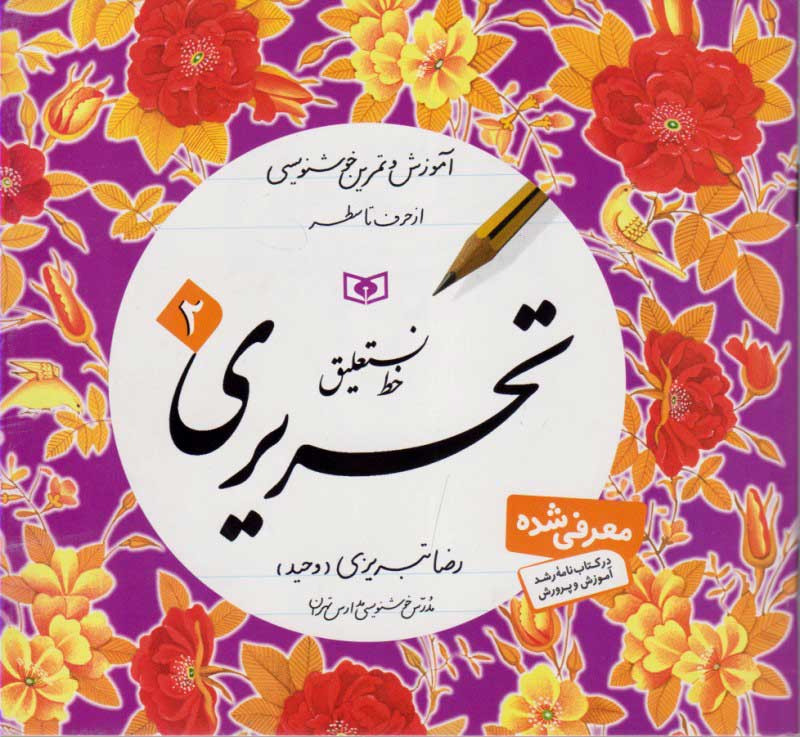 آموزش و تمرین خوشنویسی
از حرف تا سطر
۲
خط نستعلیق
تحریری
رضا تبریزی (وحید)
مدرس خوشنویسی مدارس تهران
معرفی شده
در کتاب نامه رشد
آموزش و پرورش